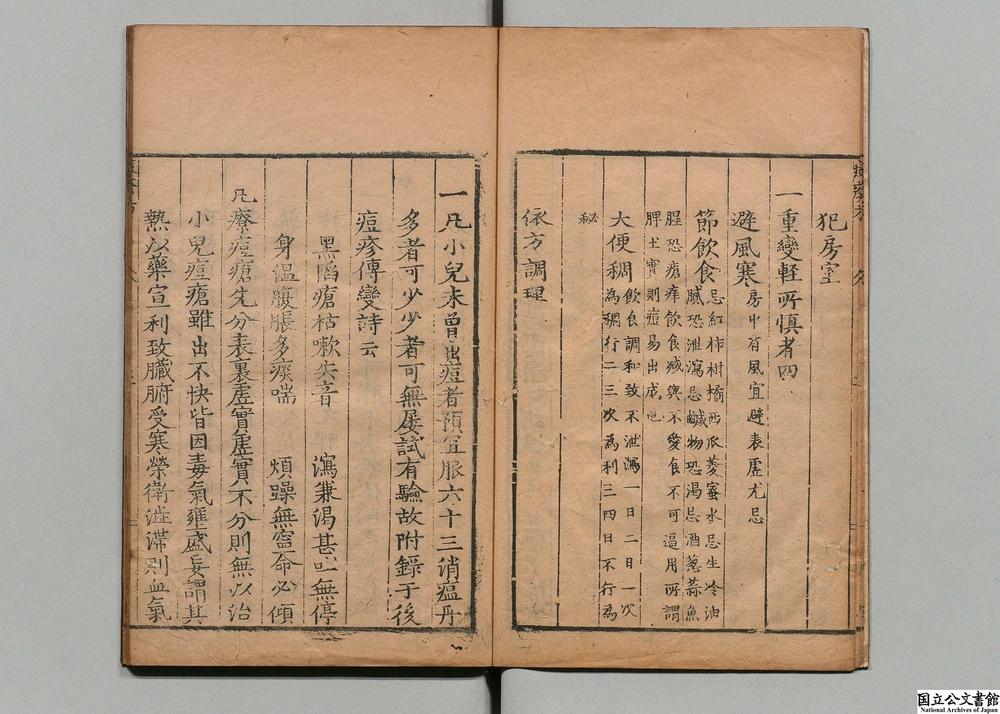 犯房室
一重變輕所慎者四
避風寒房中有風宜避表虛尤忌
節飲食忌紅柿柑橘西瓜菱蜜水忌生冷油
膩恐泄瀉忌鹹物恐渴忌酒葱蒜魚
腥恐瘡痒飲食減與不愛食不可逼用所謂
脾土實則痘易出成也
大便稠飲食調和致不泄瀉一日二日一次
為稠行二三次為利三四日不行為
秘
依方調理
一凡小兒未曾出痘者預宜服六十三消瘟丹
多者可少少者可無屢試有驗故附錄于後
痘疹傳變詩云
黑陷瘡枯嗽失音 瀉兼渴甚吐無停
身溫腹脹多痰喘 煩躁無寧命必傾
凡療痘瘡先分表裏虛實虛實不分則無以治
小兒痘瘡雖出不快皆因毒氣壅盛妄謂其
熱以藥宣利致臟腑受寒榮衛澁滯則血氣
国立公文書館
National Archives of Japan